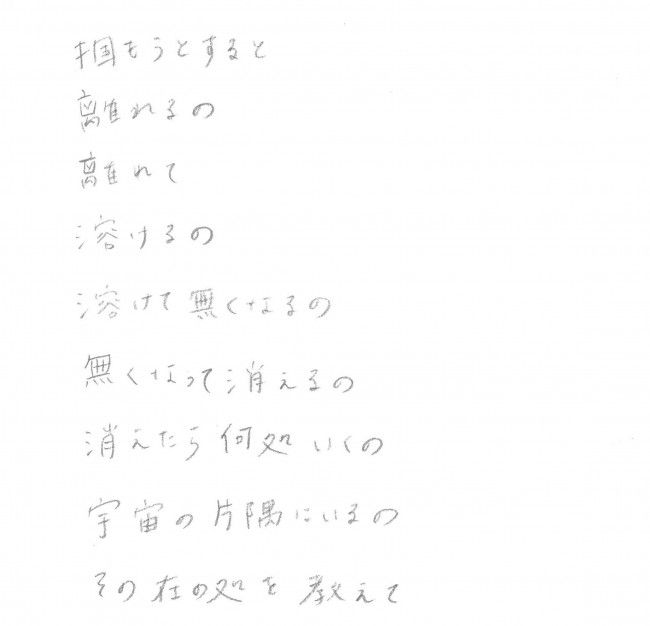 掴もうとすると
離れるの
離れて
溶けるの
溶けて無くなるの
無くなって消えるの
消えたら何処いくの
宇宙の片隅にいるの
その在の処を教えて